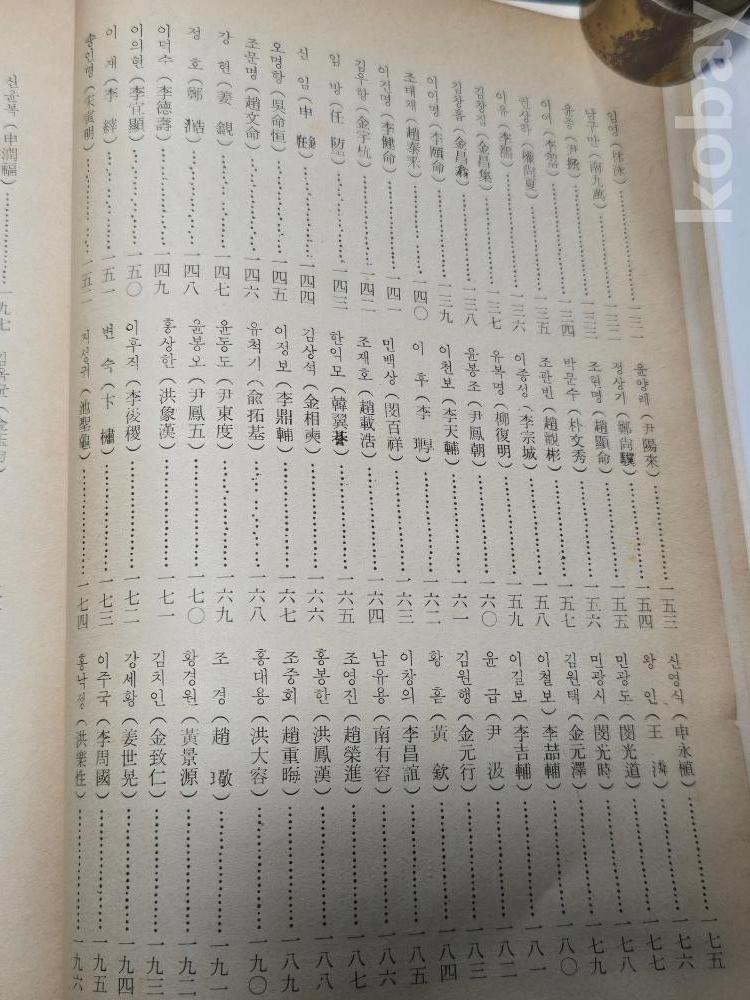 임영(林泳)…………一三一
남구만(南九萬)…………一三二
윤증(尹拯)…………一三三
이여(李畬)…………一三四
권상하(權尙夏)…………一三五
이유(李濡)…………一三六
김창집(金昌集)…………一三七
김창흡(金昌翕)…………一三八
이이명(李頤命)…………一三九
조태채(趙泰采)…………一四〇
이건명(李健命)…………一四一
김우항(金宇杭)…………一四二
임 방(任 埅)…………一四三
신 임(申 銋)…………一四四
오명항(吳命恒)…………一四五
조문명(趙文命)…………一四六
강 현(姜 鋧)…………一四七
정 호(鄭 澔)…………一四八
이덕수(李德壽)…………一四九
이의현(李宜顯)…………一五〇
이 재(李 縡)…………一五一
송인명(宋寅明)…………一五二
윤양래(尹陽來)…………一五三
정상기(鄭尙驥)…………一五四
조현명(趙顯命)…………一五五
박문수(朴文秀)…………一五六
조관빈(趙觀彬)…………一五七
이종성(李宗城)…………一五八
유복명(柳復明)…………一五九
윤봉조(尹鳳朝)…………一六〇
이천보(李天輔)…………一六一
이 후(李 㷞)…………一六二
민백상(閔百祥)…………一六三
조재호(趙載浩)…………一六四
한익모(韓翼謩)…………一六五
김상석(金相奭)…………一六六
이정보(李鼎輔)…………一六七
유척기(兪拓基)…………一六八
윤동도(尹東度)…………一六九
윤봉오(尹鳳五)…………一七〇
홍상한(洪象漢)…………一七一
이후직(李後稷)…………一七二
변 숙(卞 橚)…………一七三
지성귀(池聖龜)…………一七四
신영식(申永植)…………一七五
왕 인(王 潾)…………一七六
민광도(閔光道)…………一七七
민광시(閔光時)…………一七八
김원택(金元澤)…………一七九
이철보(李喆輔)…………一八〇
이길보(李吉輔)…………一八一
윤 급(尹 汲)…………一八二
김원행(金元行)…………一八三
황 흔(黃 欽)…………一八四
이창의(李昌誼)…………一八五
남유용(南有容)…………一八六
조영진(趙榮進)…………一八七
홍봉한(洪鳳漢)…………一八八
조중회(趙重晦)…………一八九
홍대용(洪大容)…………一九〇
조 경(趙 璥)…………一九一
황경원(黃景源)…………一九二
김치인(金致仁)…………一九三
강세황(姜世晃)…………一九四
이주국(李周國)…………一九五
홍낙성(洪樂性)…………一九六
신윤복(申潤福)…………一九七
kobay